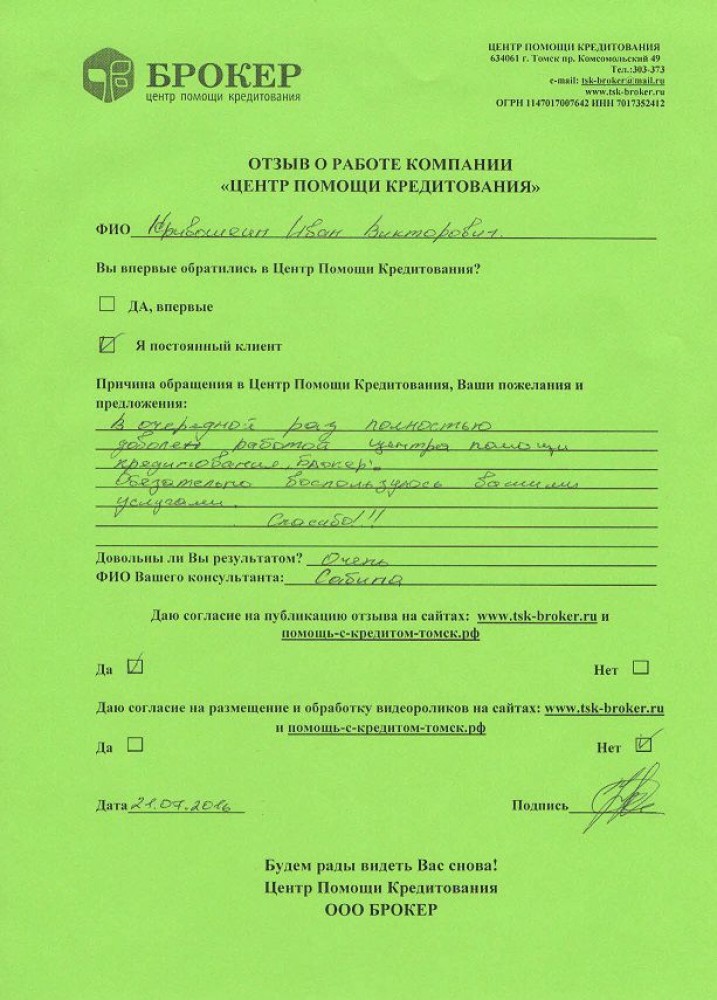 БРОКЕР
центр помощи кредитования
ЦЕНТР ПОМОЩИ КРЕДИТОВАНИЯ
634061 г. Томск пр. Комсомольский 49
Тел.:303-373
e-mail: tsk-broker@mail.ru
www.tsk-broker.ru
ОГРН 1147017007642 ИНН 7017352412
ОТЗЫВ О РАБОТЕ КОМПАНИИ
«ЦЕНТР ПОМОЩИ КРЕДИТОВАНИЯ»
ФИО Кривошеин Иван Викторович.
Вы впервые обратились в Центр Помощи Кредитования?
ДА, впервые
Я постоянный клиент
Причина обращения в Центр Помощи Кредитования, Ваши пожелания и
предложения:
В очередной раз полностью
доволен работой центра помощи
кредитования „Брокер“.
Обязательно воспользуюсь вашими
услугами.
Спасибо!!!
Довольны ли Вы результатом? Очень
ФИО Вашего консультанта: Сабина
Даю согласие на публикацию отзыва на сайтах: www.tsk-broker.ru и
помощь-с-кредитом-томск.рф
Да Нет
Даю согласие на размещение и обработку видеороликов на сайтах: www.tsk-broker.ru
и помощь-с-кредитом-томск.рф
Да Нет
Дата 21.07.2016 Подпись
Будем рады видеть Вас снова!
Центр Помощи Кредитования
ООО БРОКЕР